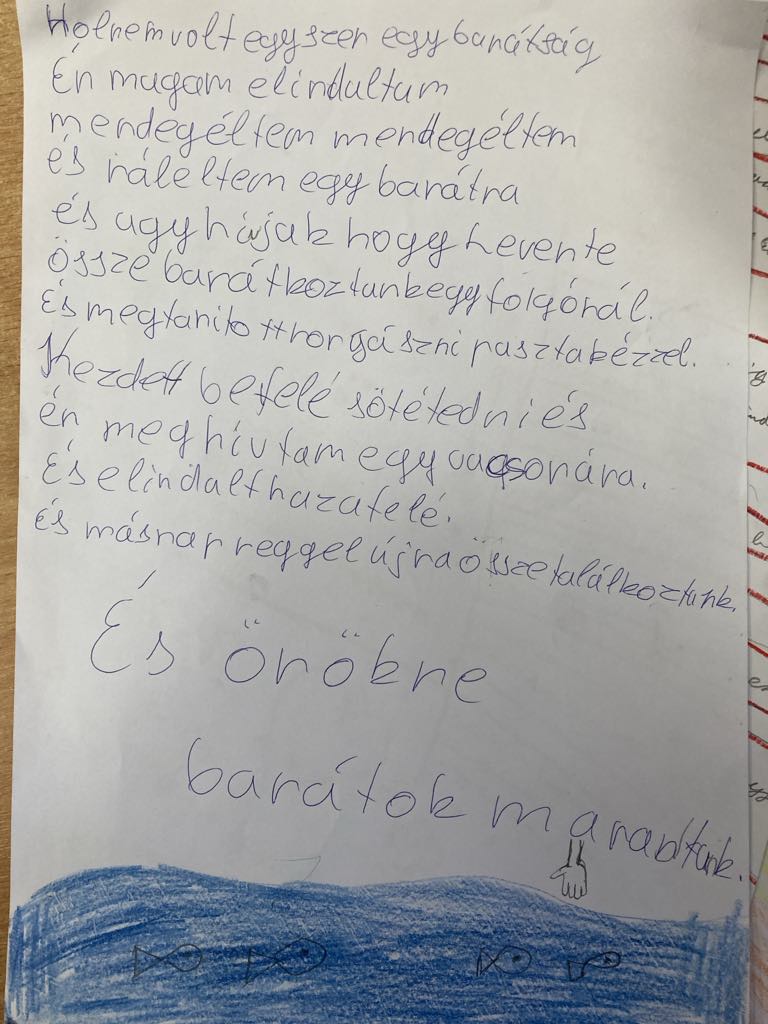 Holnemvolt egyszer egy barátság
Én magam elindultam
mendegéltem mendegéltem
és ráleltem egy barátra
és ugy hívják hogy Levente
össze barátkoztunk egy folyónál.
És megtanított horgászni pusztakézzel.
Kezdett befelé sötétedni és
én meghívtam egy vacsorára.
És elindult hazafelé.
és másnap reggel újra össze találkoztunk.
És örökre
barátok maradtunk.